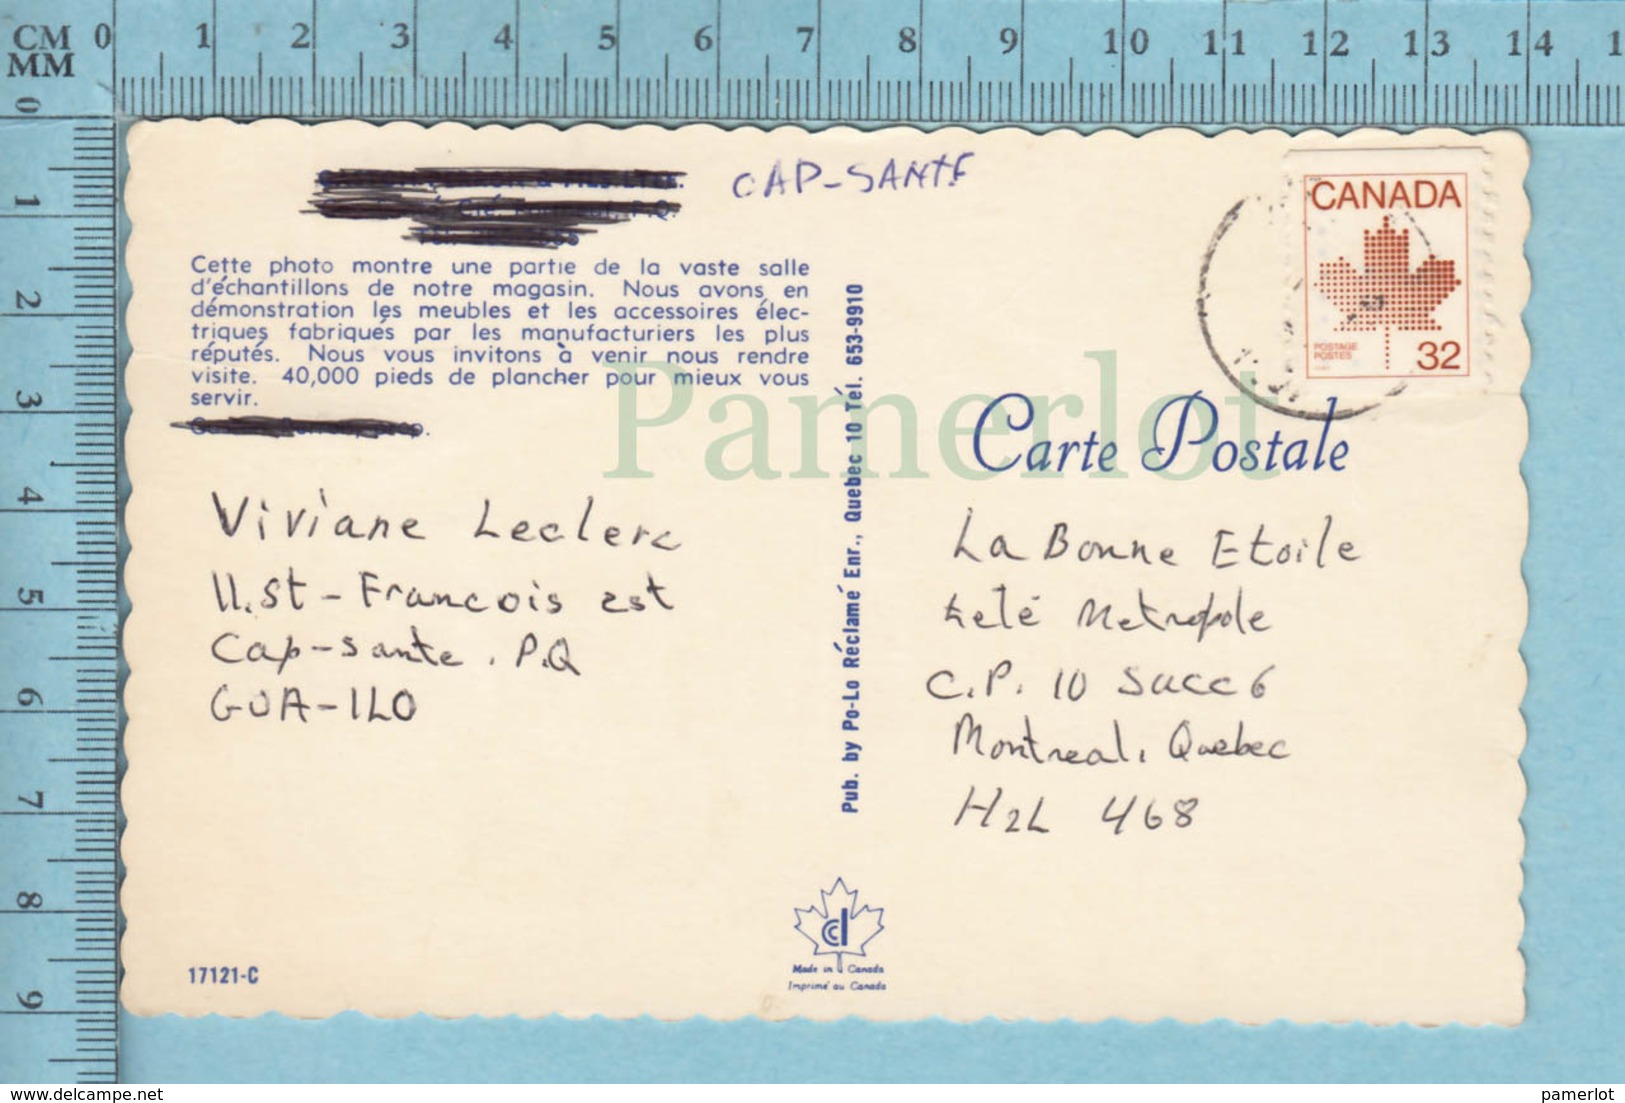 CM 0 1 2 3 4 5 6 7 8 9 10 11 12 13 14 1
MM
0 1 2 3 4 5 6 7 8 9
CAP-SANTE
CANADA
POSTAGE
POSTES
32
Cette photo montre une partie de la vaste salle
d'échantillons de notre magasin. Nous avons en
démonstration les meubles et les accessoires élec-
triques fabriqués par les manufacturiers les plus
réputés. Nous vous invitons à venir nous rendre
visite. 40,000 pieds de plancher pour mieux vous
servir.
Pamerlot
Carte Postale
Viviane Leclerc
11. St-Francois est
Cap-Sante. P.Q
G0A-1L0
Pub. by Po-Lo Réclamé Enr., Quebec 10 Tél. 653-9910
La Bonne Etoile
Télé Metropole
C.P. 10 Succ 6
Montreal, Quebec
H2L 468
17121-C
Made in Canada
Imprimé au Canada
pamerlot